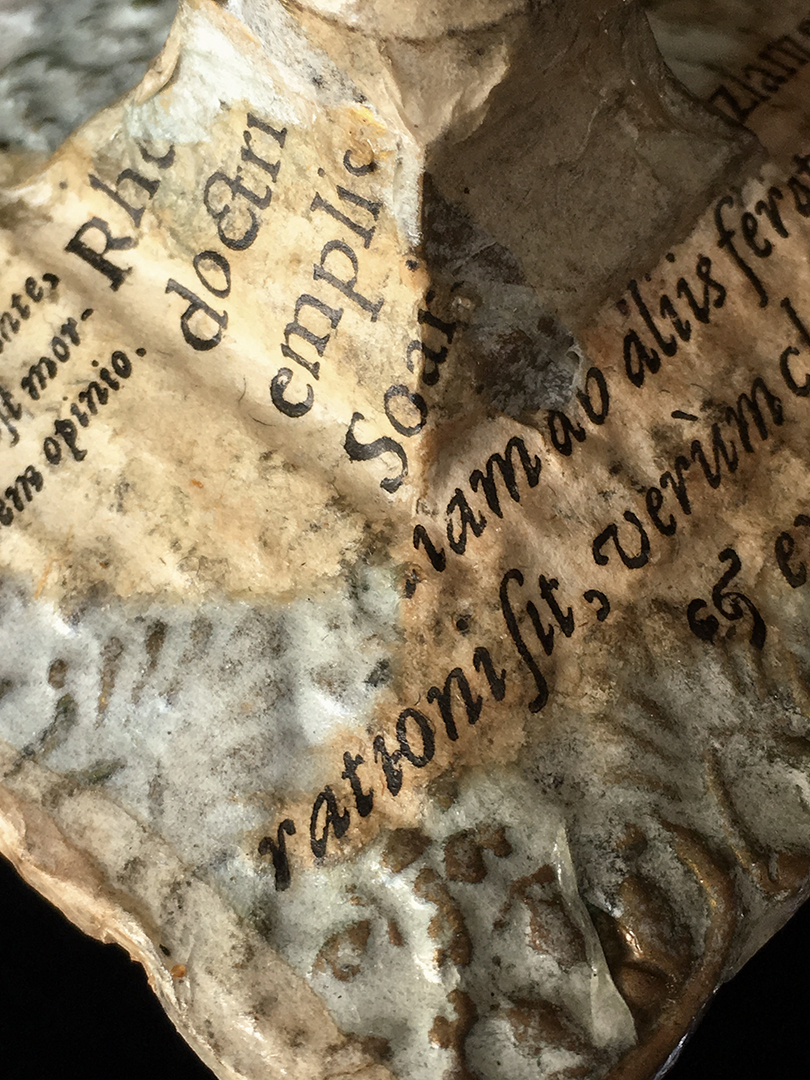 nte,
st mor-
em opinio.
Rho
doctri
emplic
Soar
iam ab aliis feru
rationi sit, verùm cl
& e